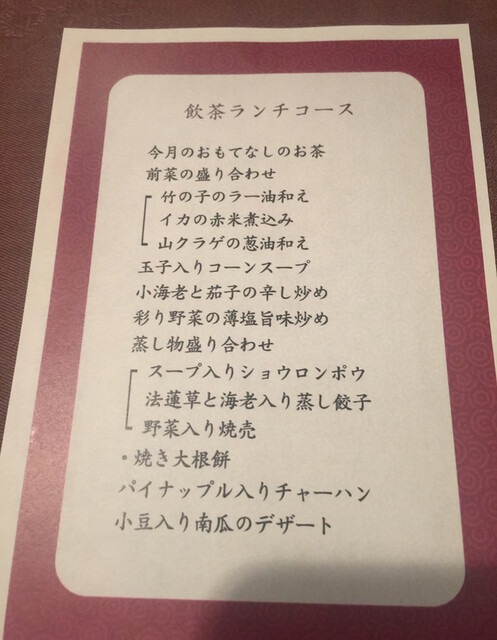 飲茶ランチコース
今月のおもてなしのお茶
前菜の盛り合わせ
竹の子のラー油和え
イカの赤米煮込み
山クラゲの葱油和え
玉子入りコーンスープ
小海老と茄子の辛し炒め
彩り野菜の薄塩旨味炒め
蒸し物盛り合わせ
スープ入りショウロンポウ
法蓮草と海老入り蒸し餃子
野菜入り焼売
・焼き大根餅
パイナップル入りチャーハン
小豆入り南瓜のデザート